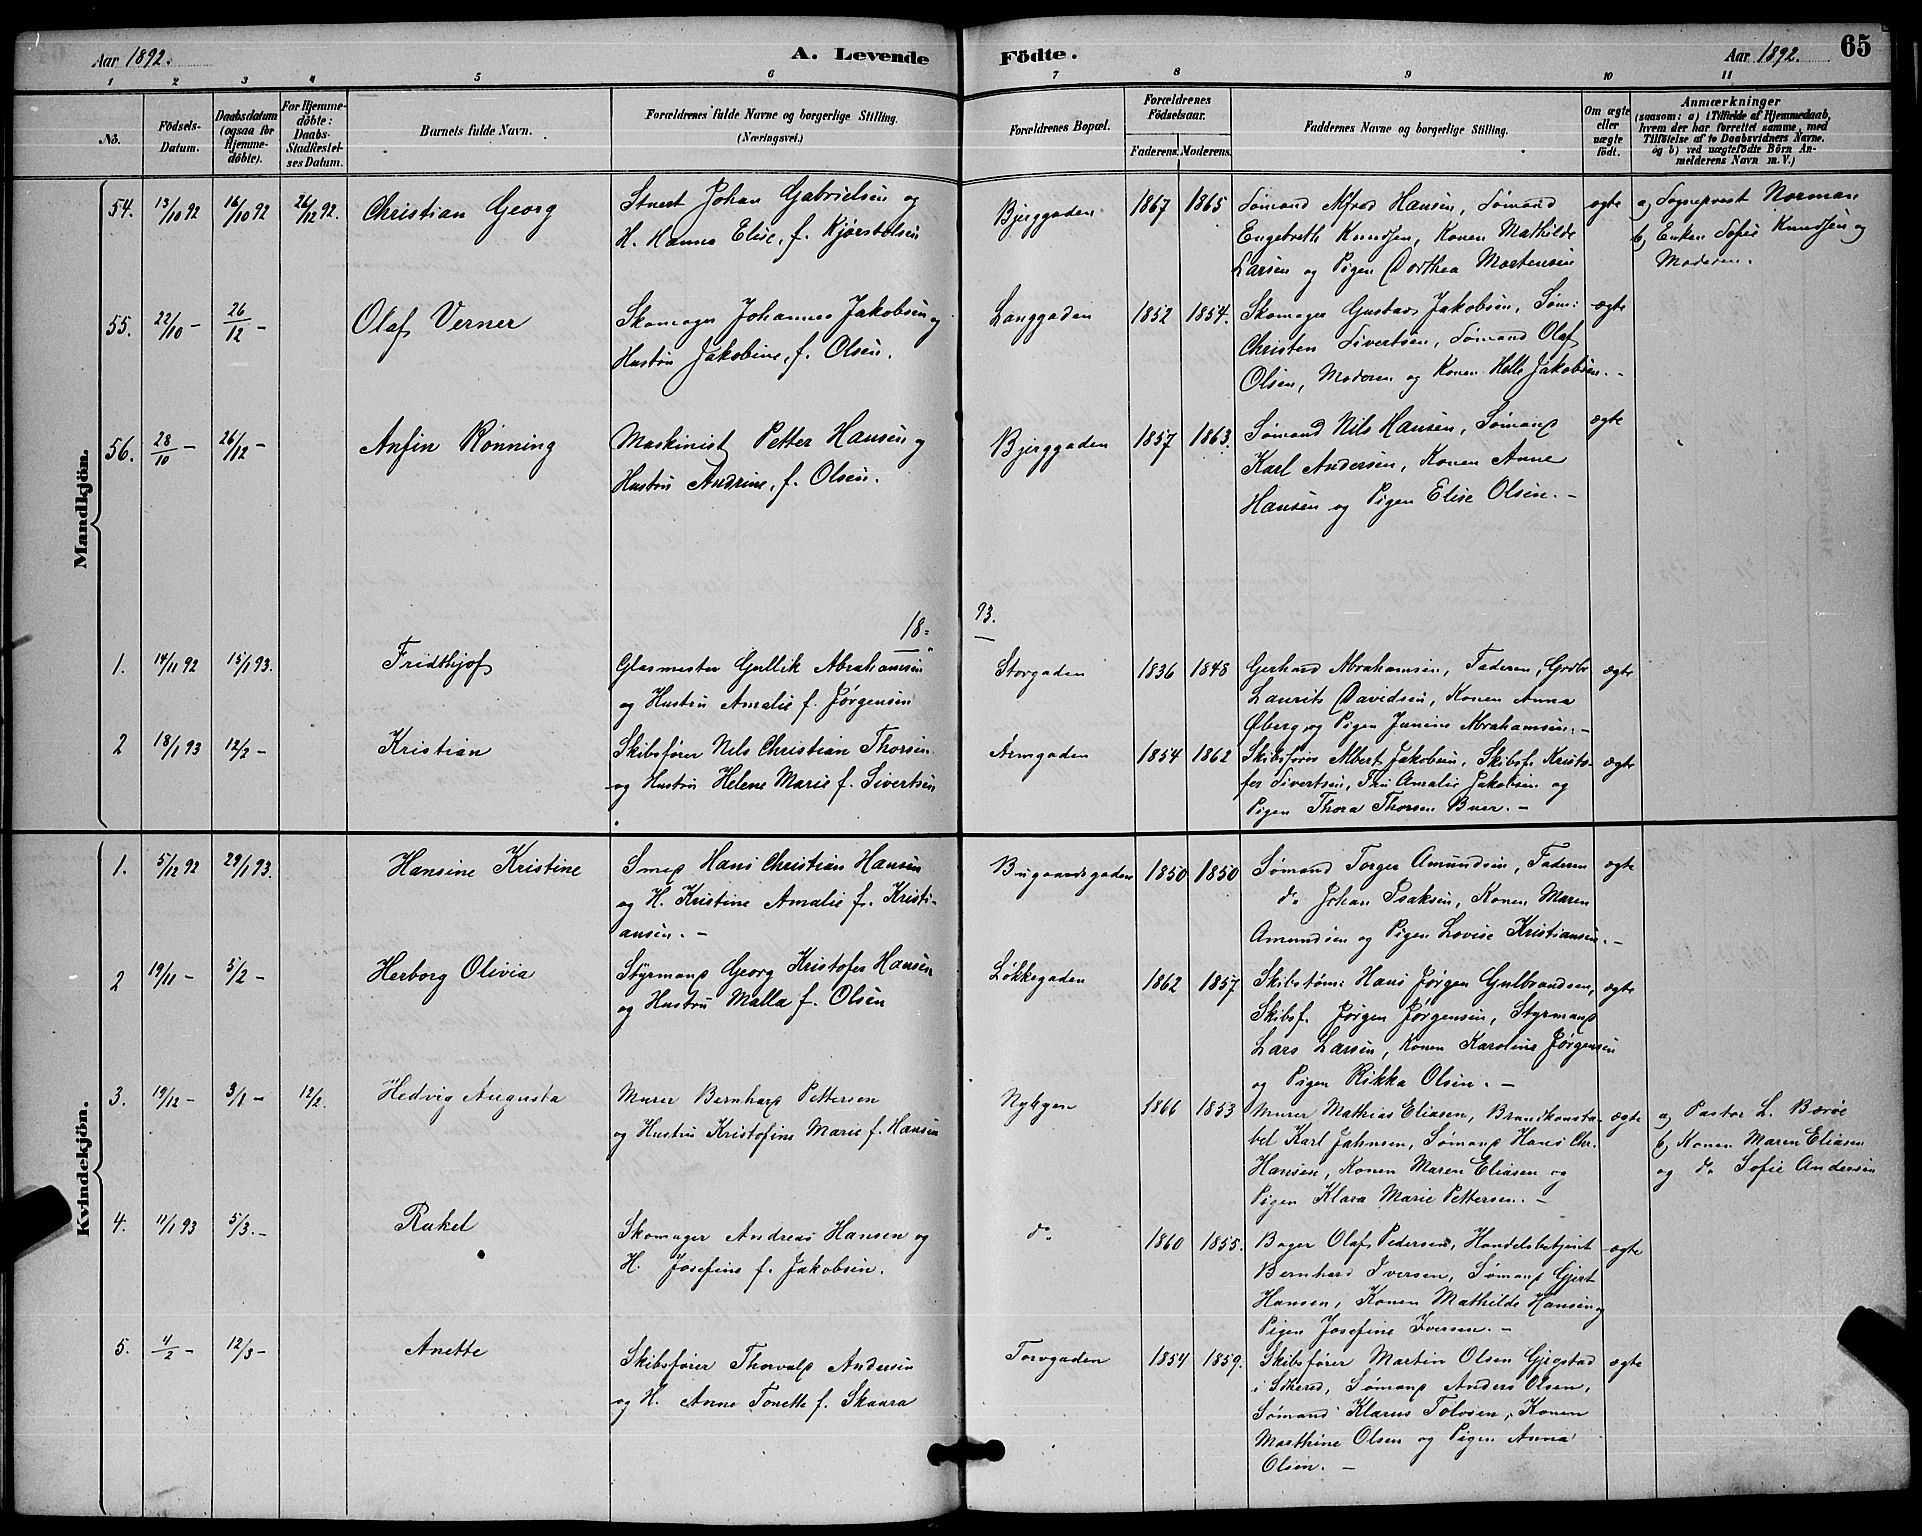 Aar 1892. A. Levende Födte. Aar 1892. 65
1 2 3 4 5 6 7 8 9 10 11
No.
Födsels-Datum.
Daabsdatum (ogsaa for Hjemmedöbte).
For Hjemmedöbte: Daabs-Stadfæstelses Datum.
Barnets fulde Navn.
Forældrenes fulde Navne og borgerlige Stilling. (Næringsvei.)
Forældrenes Bopæl.
Forældrenes Födselsaar.
Faderens. Moderens.
Faddernes Navne og borgerlige Stilling.
Om ægte eller uægte födt.
Anmærkninger
(saasom: a) i Tilfælde af Hjemmedaab,
hvem der har forrettet samme, med
Tilföielse af to Daabsvidners Navne,
og b) ved uægtefödte Börn An-
melderens Navn m. V.)
Mandkjön.
54. 13/10 92 16/10 92 26/12 92. Christian Georg
Johan Gabrielsen og
H. Hanna Elise, f. Kjøstolsen
Bjerggaden 1867 1865
Sømand Alfred Hansen, Sømand
Engebreth Knudsen, Konen Mathilde
Larsen og Pigen Dorthea Mortensen
ægte
a) Sogneprest Norman
b) Enken Sofie Knudsen og
Moderen.
55. 22/10 - 26/12 - Olaf Verner
Skomager Johannes Jakobsen og
Hustru Jakobine, f. Olsen.
Langgaden 1852 1854.
Skomager Gustav Jakobsen, Søm:
Christen Sivertsen, Sømand Olaf
Olsen, Moderen og Konen Helle Jakobsen. -
ægte
56. 28/10 - 26/12 - Anfin Rønning
Maskinist Petter Hansen og
Hustru Andrine, f. Olsen.
Bjerggaden 1857 1863.
Sømand Nils Hansen, Sømand
Karl Andersen, Konen Anne
Hansen og Pigen Elise Olsen. -
ægte
18= 93.
1. 14/11 92 15/1 93. Fridthjof
Glasmester Gullik Abrahamsen
og Hustru Amalie f. Jørgensen
Storgaden 1836 1848
Gerhard Abrahamsen, Faderen,
Laurits Davidsen, Konen Anna
Øberg og Pigen Janine Abrahamsen. -
ægte
2 18/1 93 12/2 - Kristian
Skibsfører Nils Christian Thorsen
og Hustru Helene Marie f. Sivertsen
1854 1862
Skibsfører Albert Jakobsen, Skibsf. Kristo-
fer Sivertsen, Fru Amalie Jakobsen og
Pigen Thora Thorsen Buer. -
ægte
Kvindekjön.
1. 5/12 92 29/1 93. Hansine Kristine
Smed Hans Christian Hansen
og H. Kristine Amalie f. Kristi-
ansen. -
Bugaardsgaden 1850 1850
Sømand Torger Amundsen, Faderen
do Johan Isaksen, Konen Maren
Amundsen og Pigen Lovise Kristiansen. -
ægte
2 19/11 - 5/2 - Herborg Olivia
Styrmand Georg Kristofer Hansen
og Hustru Malla f. Olsen
Løkkegaden 1862 1857
Skibstøm: Hans Jørgen Gulbrandsen,
Skibsf. Jørgen Jørgensen, Styrmand
Lars Larsen, Konen Karoline Jørgensen
og Pigen Rikka Olsen. -
ægte
3. 19/12 - 3/1 - 12/2. Hedvig Augusta
Murer Bernhard Pettersen
og Hustru Kristofine Marie f. Hansen
Nybyen 1866 1853
Murer Mathias Eliasen, Brandkonsta-
bel Karl Jahnsen, Sømand Hans Chr.
Hansen, Konen Maren Eliasen og
Pigen Klara Marie Pettersen. -
ægte
a) Pastor L. Barøe
b) Konen Maren Eliasen
og do Sofie Andersen
4. 11/1 93 5/3. - Rakel
Skomager Andreas Hansen og
H. Josefine f. Jakobsen.
do 1860 1855.
Bager Olaf Pedersen, Handelsbetjent
Bernhard Iversen, Sømand Gjert
Hansen, Konen Mathilde Hansen og
Pigen Josefine Iversen. -
ægte
5. 4/2 - 12/3 - Anette
Skibsfører Thorvald Andersen
og H. Anne Tonette f. Skaara
Torvgaden 1854 1859.
Skibsfører Martin Olsen Gjogstad
i Skered, Sømand Anders Olsen,
Sømand Klarus Tolvsen, Konen
Marthine Olsen og Pigen Anna
Olsen. -
ægte